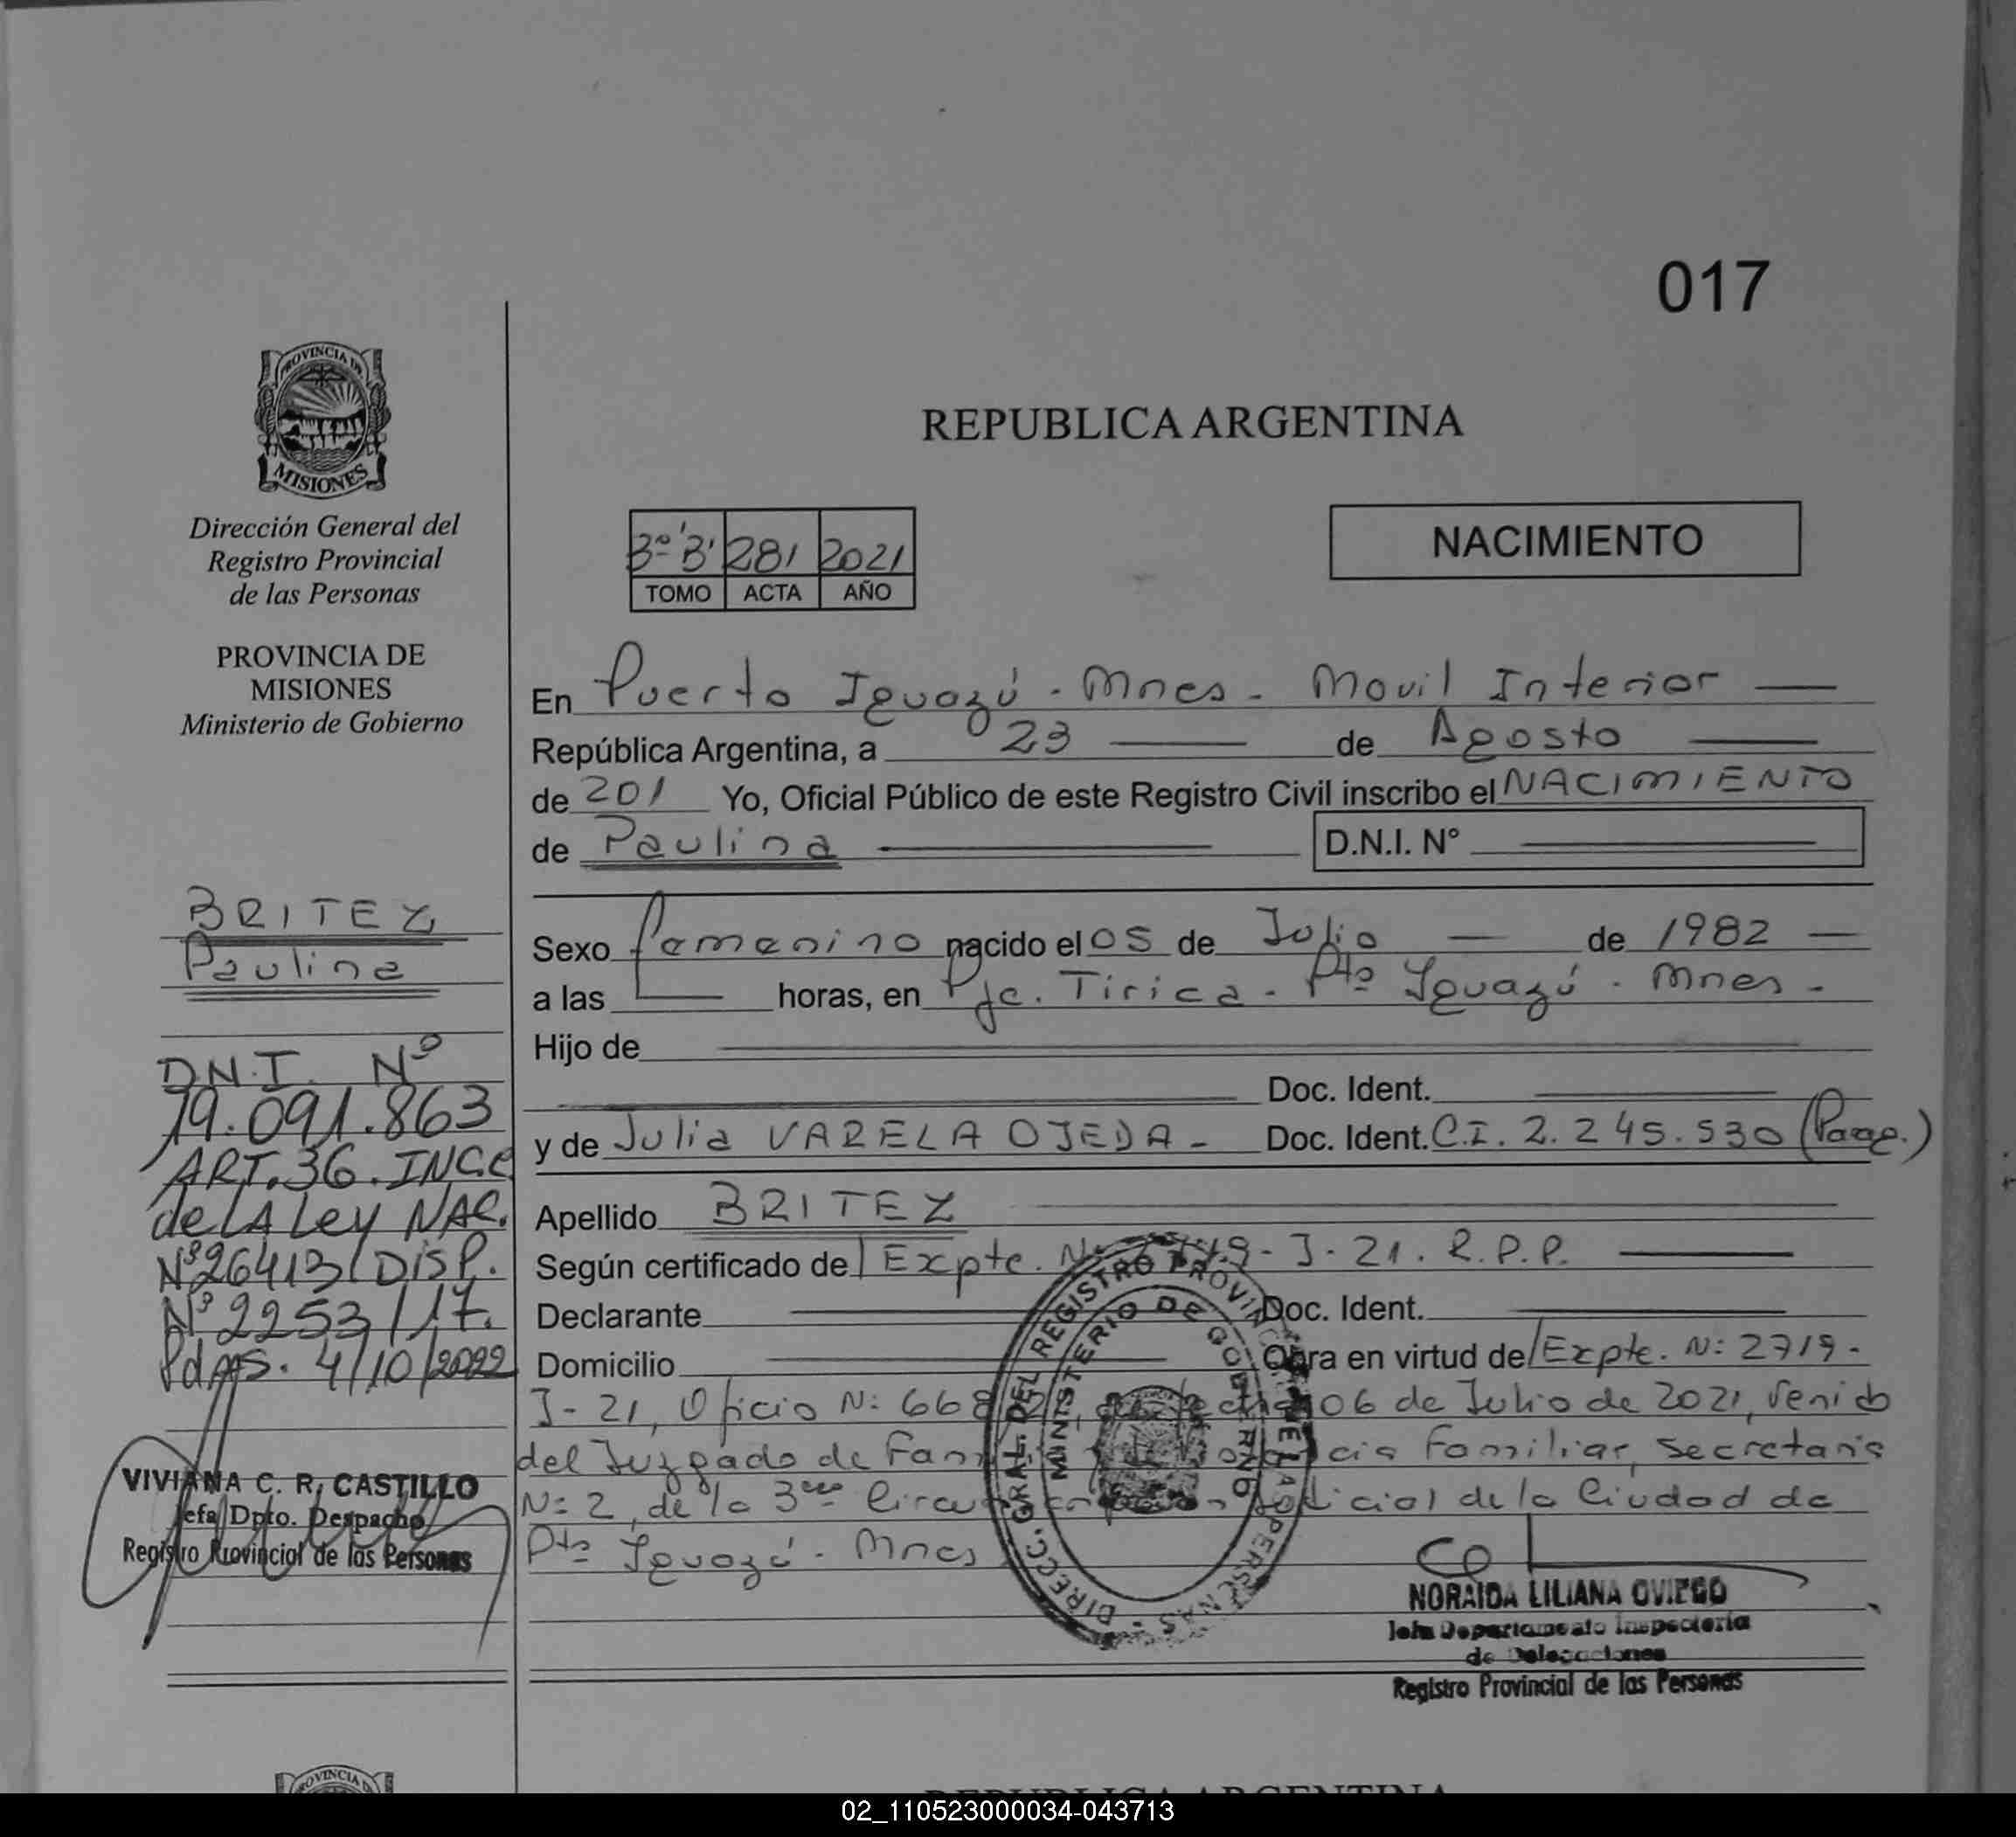 017
PROVINCIA DE
MISIONES
Dirección General del
Registro Provincial
de las Personas
PROVINCIA DE
MISIONES
Ministerio de Gobierno
BRITEZ
Paulina
D.N.I. Nº
19.091.863
ART. 36. INC.c
de LA Ley NAC.
Nº 26413/DISP.
Nº 2253/17.
Pdas. 4/10/2022
VIVIANA C. R. CASTILLO
Jefa Dpto. Despacho
Registro Provincial de las Personas
REPUBLICA ARGENTINA
3º 'B' 281 2021
TOMO ACTA AÑO
NACIMIENTO
En Puerto Iguazú - Mnes - Movil Interior
República Argentina, a 23 de Agosto
de 201 Yo, Oficial Público de este Registro Civil inscribo el NACIMIENTO
de Paulina D.N.I. N°
Sexo femenino nacido el 05 de Julio de 1982
a las horas, en Pje. Tirica - Pto Iguazú - Mnes -
Hijo de
Doc. Ident.
y de Julia VARELA OJEDA - Doc. Ident. C.I. 2.245.530 (Parag.)
Apellido BRITEZ
Según certificado de Expte. Nº - J - 21. R.P.P.
Declarante Doc. Ident.
Domicilio Obra en virtud de Expte. N: 2719-
J-21, Oficio N: 06 de Julio de 2021, venido
del Juzgado de Familiar, Secretaria
N: 2, de la 3era Judicial de la Ciudad de
Pto Iguazú - Mnes
DIRECC. GRAL. DEL REGISTRO PROVINCIAL DE LAS PERSONAS
MINISTERIO DE GOBIERNO
NORAIDA LILIANA OVIEDO
Jefa Departamento Inspectoria
de Delegaciones
Registro Provincial de las Personas
PROVINCIA D
REPUBLICA ARGENTINA
02_110523000034-043713